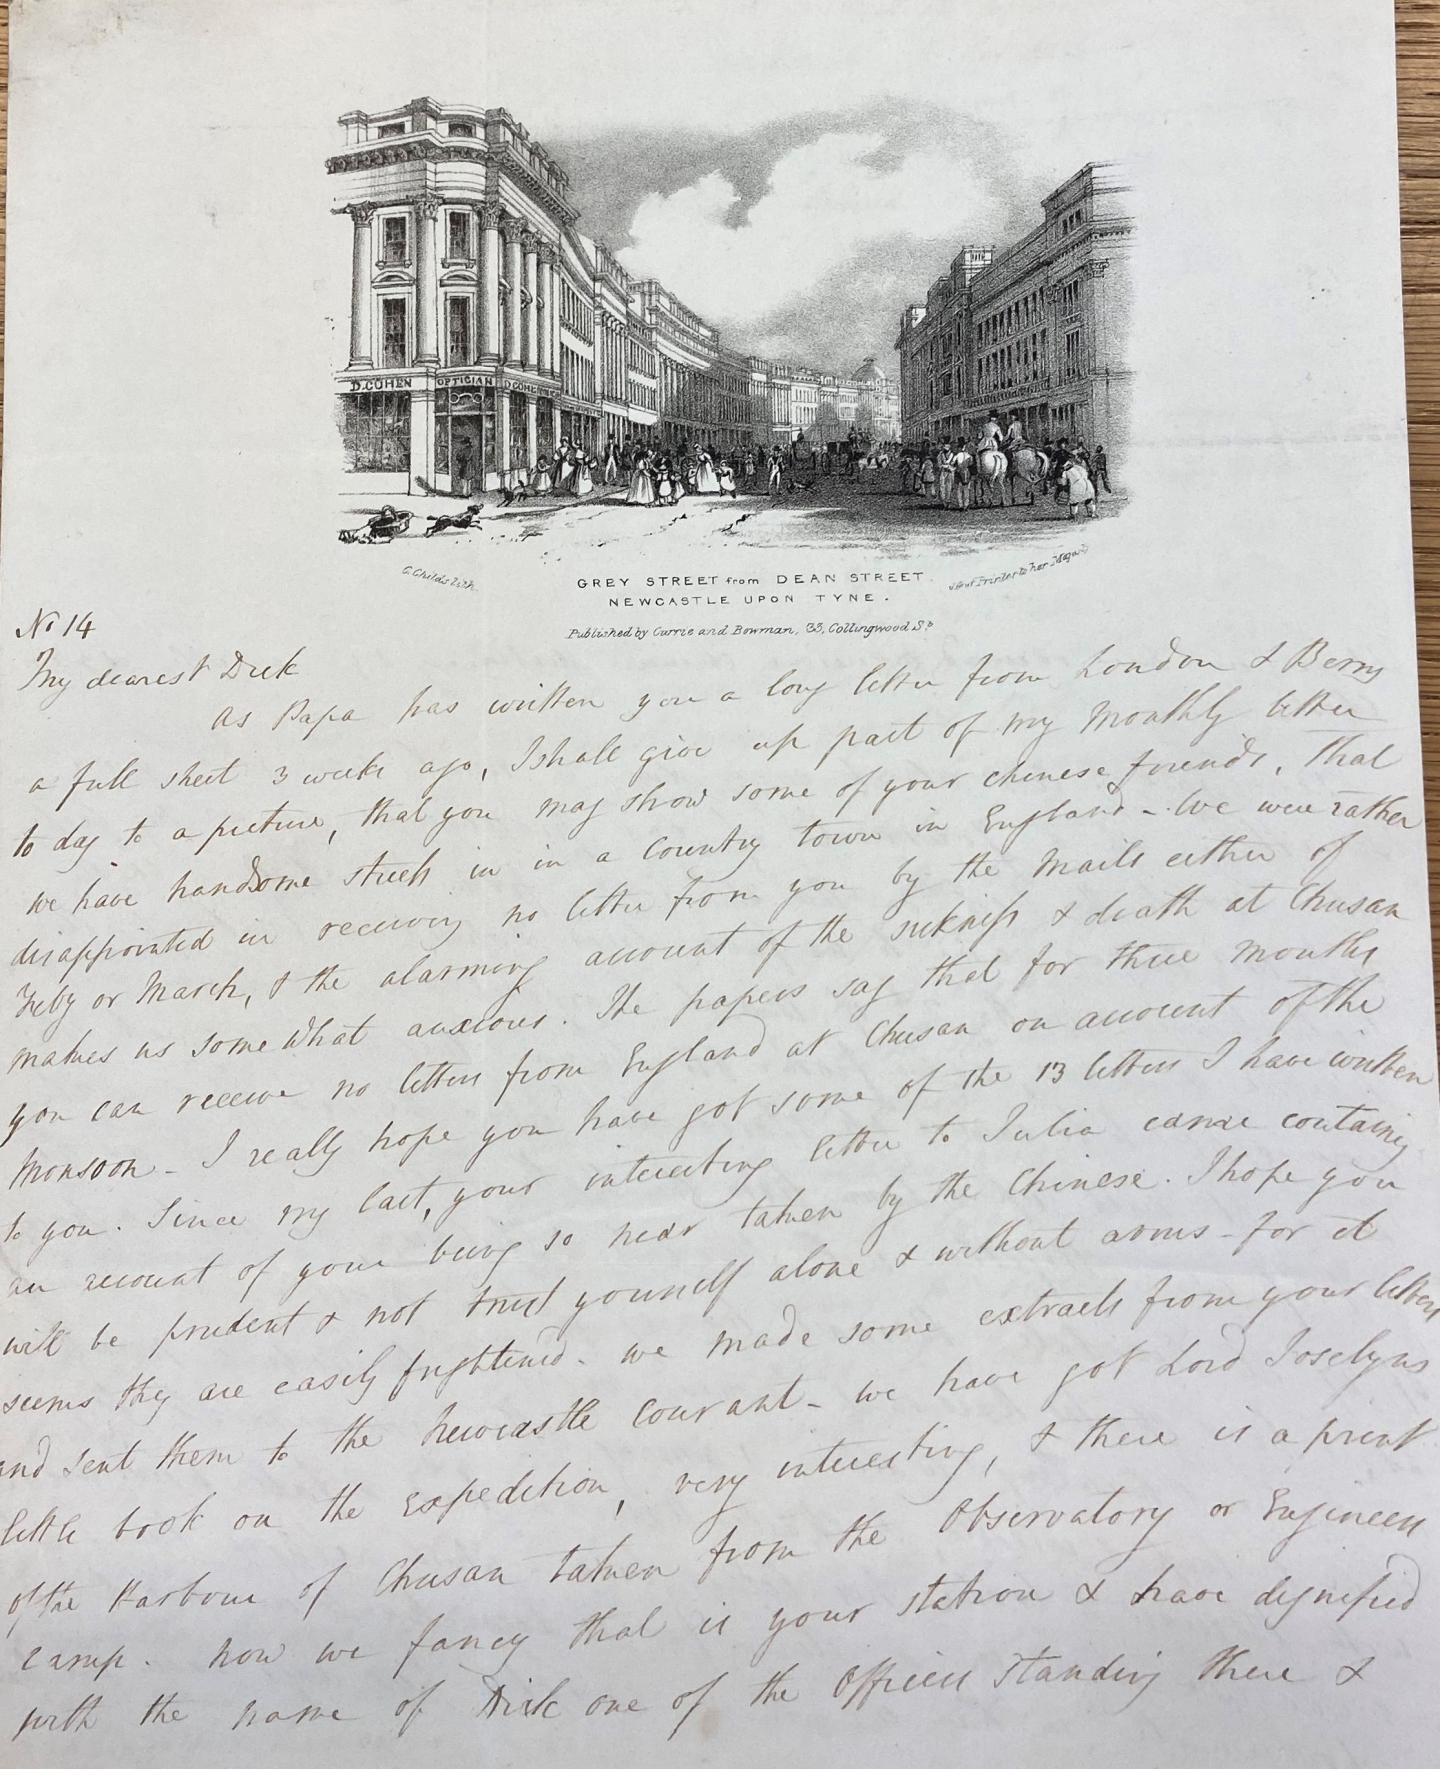 D. COHEN OPTICIAN D COHEN
G. Childs Lith.
GREY STREET from DEAN STREET.
Printer to her Majesty
NEWCASTLE UPON TYNE.
Published by Currie and Bowman, 33, Collingwood St.
No 14
My dearest Dick
As Papa has written you a long letter from London & Berry
a full sheet 3 weeks ago, I shall give up part of my monthly letter
to day to a picture, that you may show some of your chinese friends, that
we have handsome streets in in a Country town in England - We were rather
disappointed in receiving no letter from you by the Mails either of
Feby or March, & the alarming account of the sickness & death at Chusan
makes us some what anxious. The papers say that for three months
you can receive no letters from England at Chusan on account of the
Monsoon - I really hope you have got some of the 13 letters I have written
to you. Since my last, your interesting letter to Julia came containing
an account of your being so near taken by the Chinese. I hope you
will be prudent & not trust yourself alone & without arms - for it
seems they are easily frightened - we made some extracts from your letters
and sent them to the Newcastle Courant - we have got Lord Joselyns
little book on the Expedition, very interesting, & there is a print
of the Harbour of Chusan taken from the Observatory or Engineers
camp. Now we fancy that is your station & have dignified
with the name of Dick one of the Officers standing there &